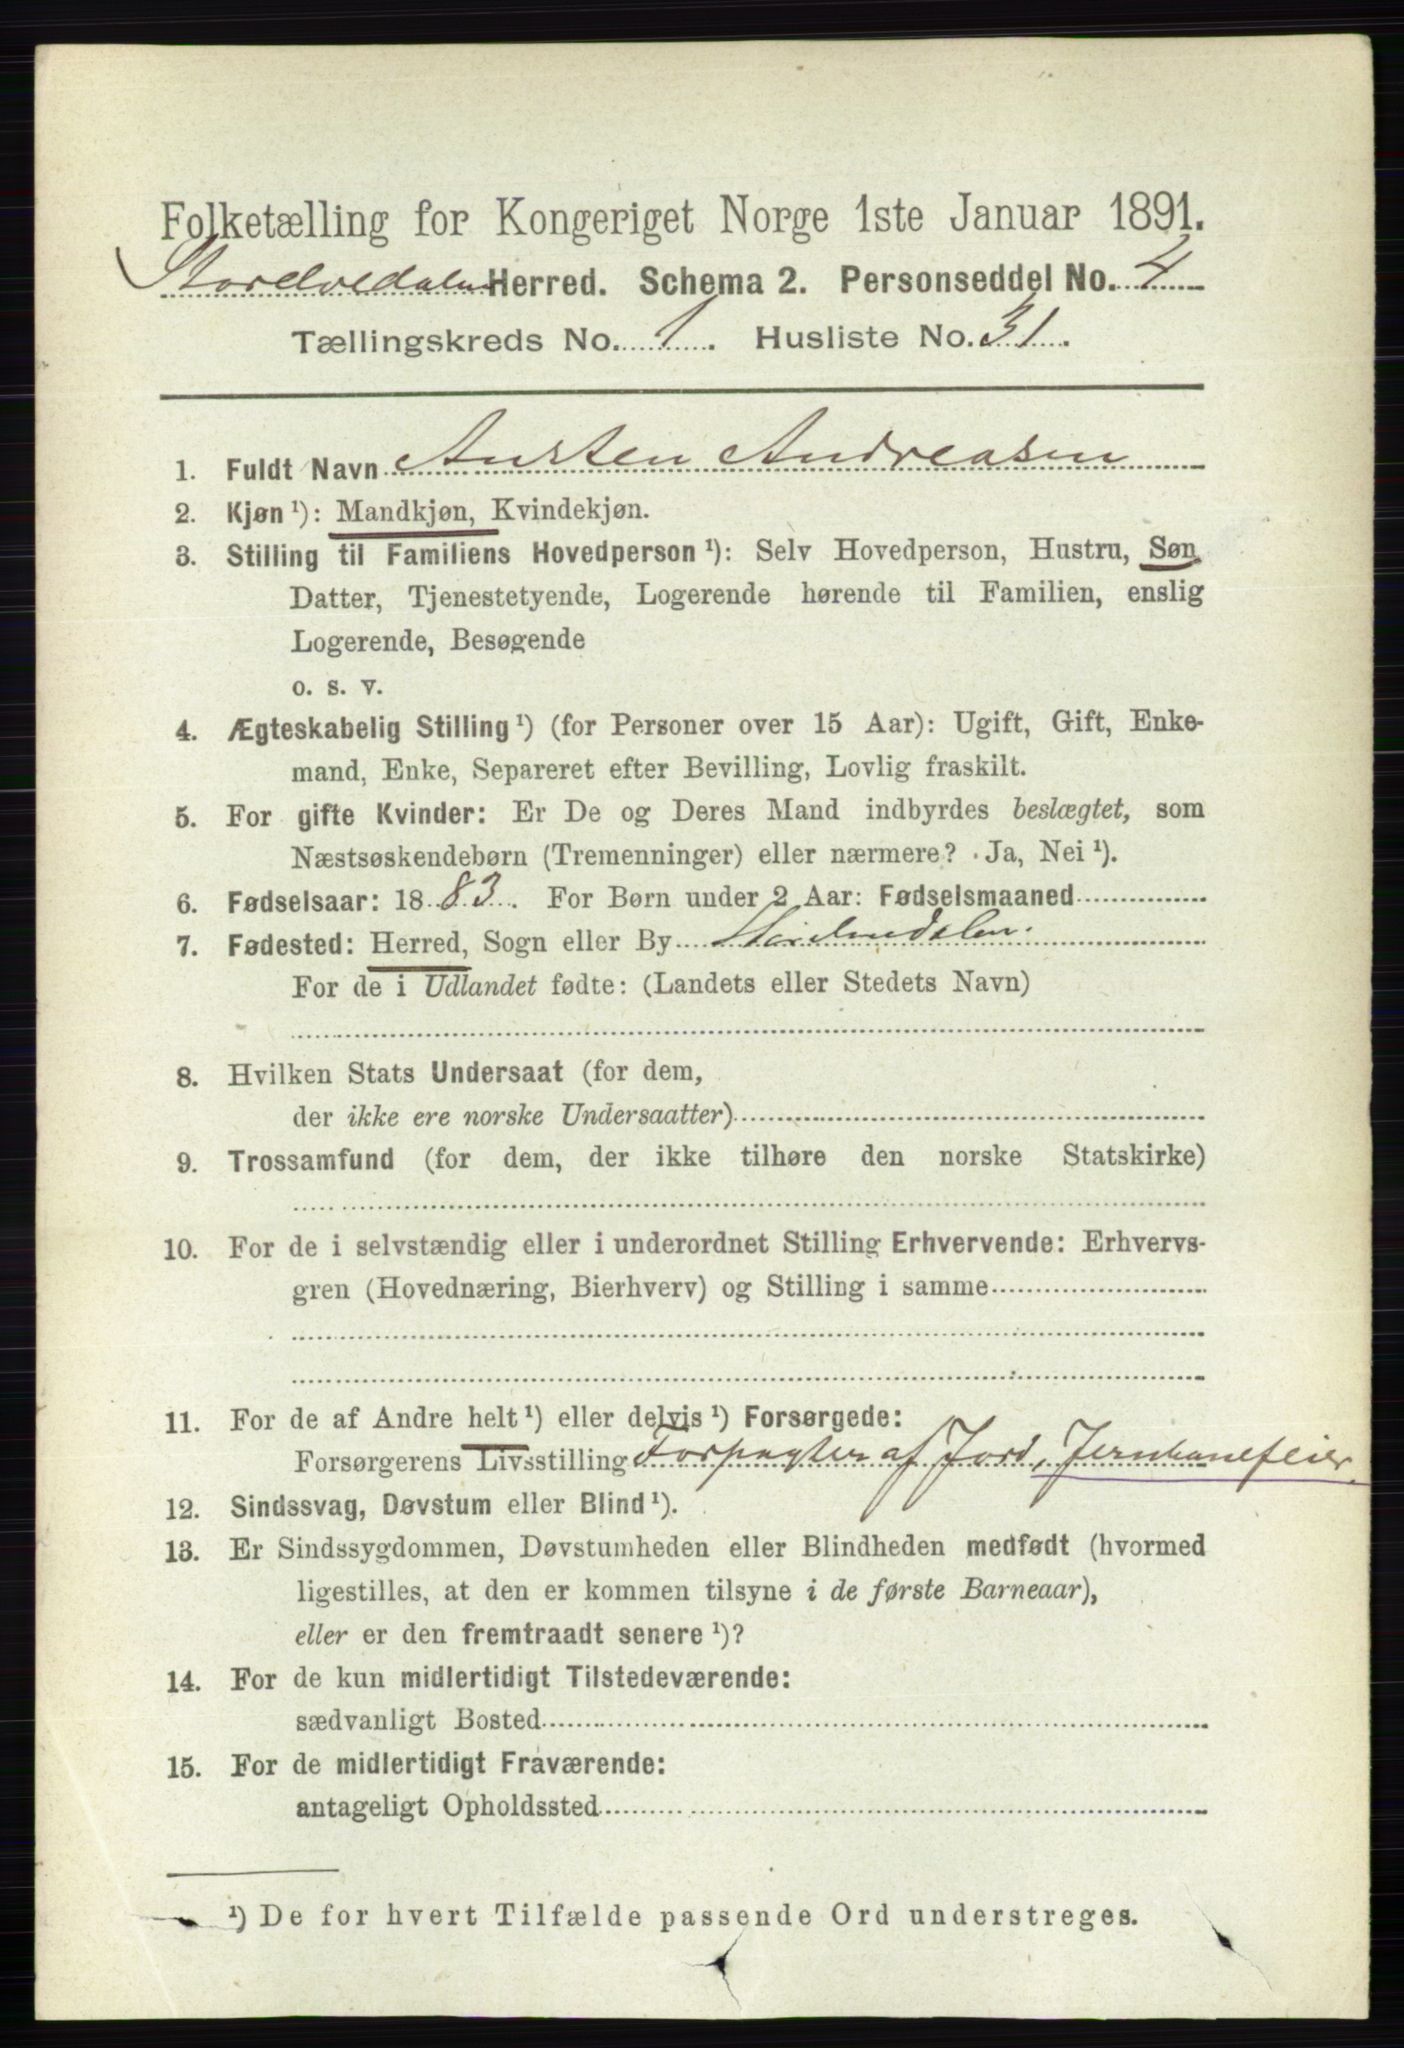 Folketælling for Kongeriget Norge 1ste Januar 1891.
Storelvedalen Herred. Schema 2. Personseddel No. 4
Tællingskreds No. 1. Husliste No. 31.
1. Fuldt Navn Austen Andreasen
2. Kjøn ¹): Mandkjøn, Kvindekjøn.
3. Stilling til Familiens Hovedperson ¹): Selv Hovedperson, Hustru, Søn
Datter, Tjenestetyende, Logerende hørende til Familien, enslig
Logerende, Besøgende
o. s. v.
4. Ægteskabelig Stilling ¹) (for Personer over 15 Aar): Ugift, Gift, Enke-
mand, Enke, Separeret efter Bevilling, Lovlig fraskilt.
5. For gifte Kvinder: Er De og Deres Mand indbyrdes beslægtet, som
Næstsøskendebørn (Tremenninger) eller nærmere? Ja, Nei ¹).
6. Fødselsaar: 1883. For Børn under 2 Aar: Fødselsmaaned
7. Fødested: Herred, Sogn eller By Storelvedalen.
For de i Udlandet fødte: (Landets eller Stedets Navn)
8. Hvilken Stats Undersaat (for dem,
der ikke ere norske Undersaatter)
9. Trossamfund (for dem, der ikke tilhøre den norske Statskirke)
10. For de i selvstændig eller i underordnet Stilling Erhvervende: Erhvervs-
gren (Hovednæring, Bierhverv) og Stilling i samme
11. For de af Andre helt ¹) eller delvis ¹) Forsørgede:
Forsørgerens Livsstilling Forpagter af Jord, Jernbanefeier.
12. Sindssvag, Døvstum eller Blind ¹).
13. Er Sindssygdommen, Døvstumheden eller Blindheden medfødt (hvormed
ligestilles, at den er kommen tilsyne i de første Barneaar),
eller er den fremtraadt senere ¹)?
14. For de kun midlertidigt Tilstedeværende:
sædvanligt Bosted
15. For de midlertidigt Fraværende:
antageligt Opholdssted
¹) De for hvert Tilfælde passende Ord understreges.